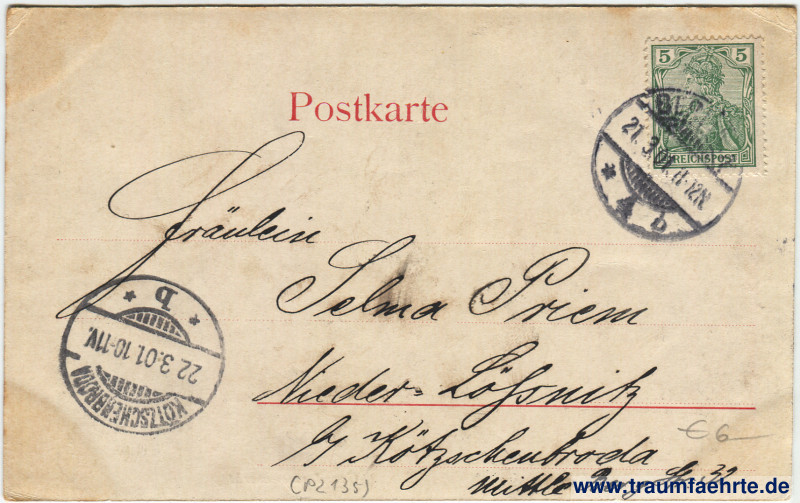 5 5
REICHSPOST
Postkarte
21.3.01.11-12N.
* b
Fräulein
Selma Priem
Nieder-Lößnitz
b/ Kötzschenbroda
Mittle 32
KÖTZSCHENBRODA
22.3.01.10-11V.
* b *
€ 6
(P2135)
www.traumfaehrte.de